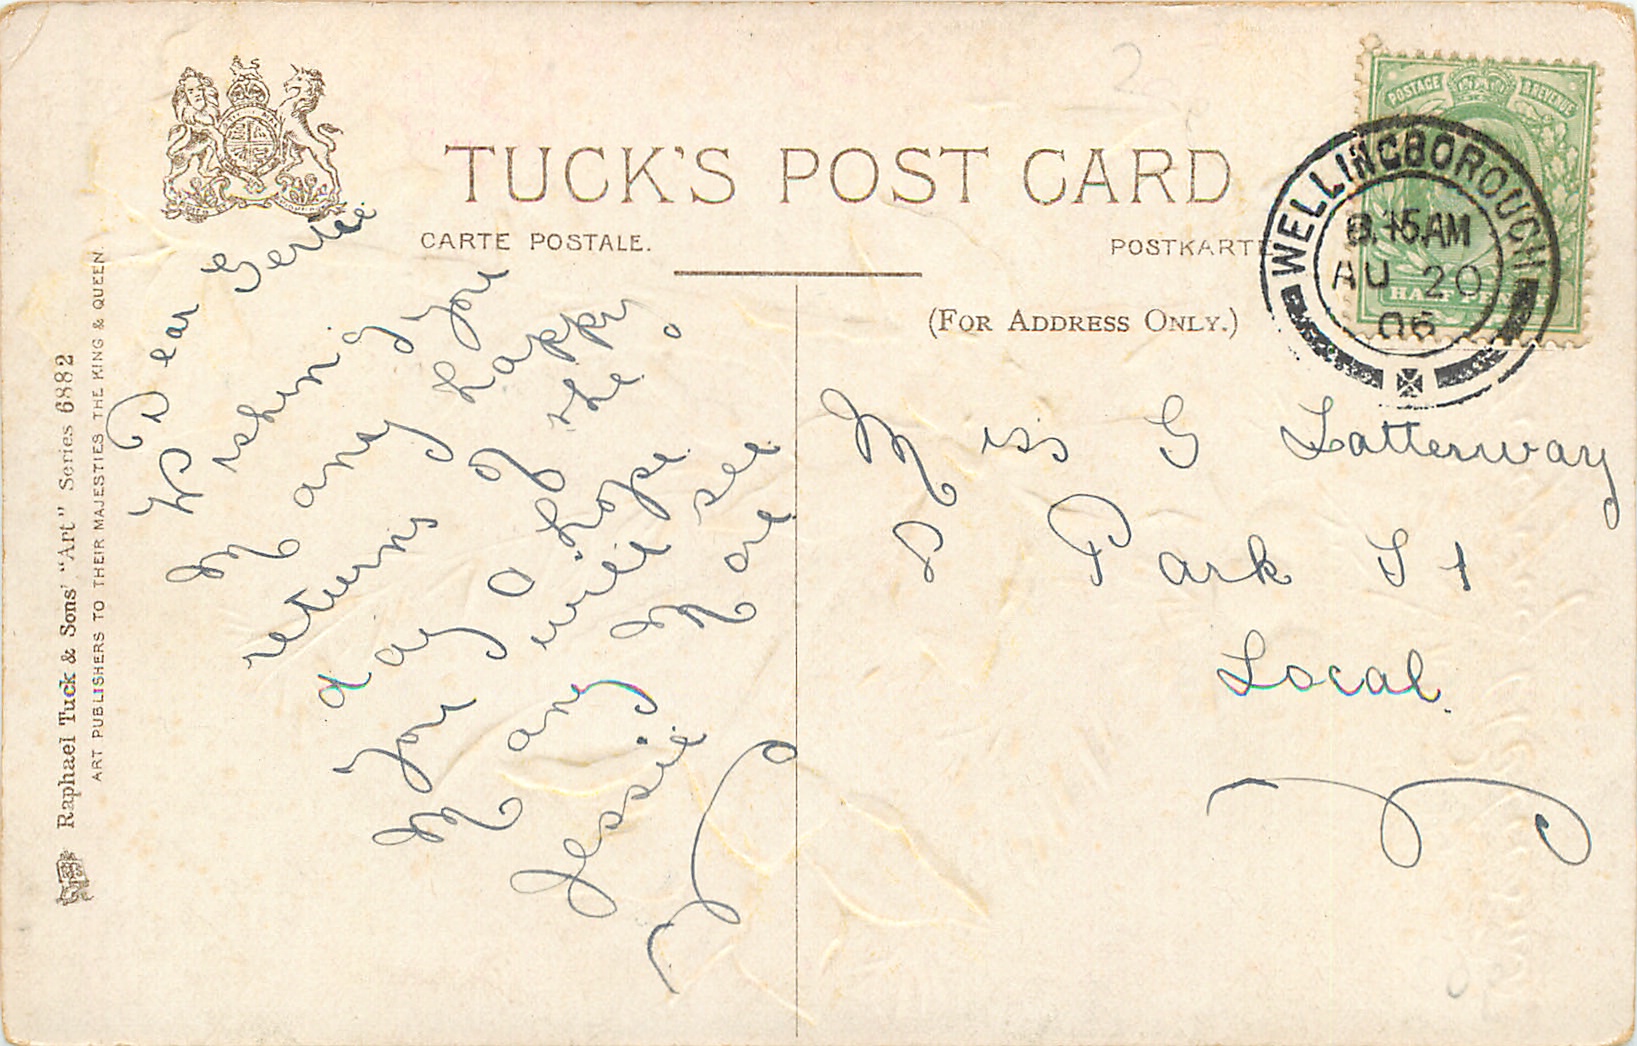 TUCK'S POST CARD
CARTE POSTALE.
POSTKARTE
(FOR ADDRESS ONLY.)
POSTAGE & REVENUE
WELLINGBOROUGH
8.45.AM
AU 20
06
Raphael Tuck & Sons' "Art" Series 6882
ART PUBLISHERS TO THEIR MAJESTIES THE KING & QUEEN.
Dear Gertie
Wishing you
Many happy
returns of the
day I hope
you will see
Many More
Jessie
Miss G Latterway
Park St
Local.